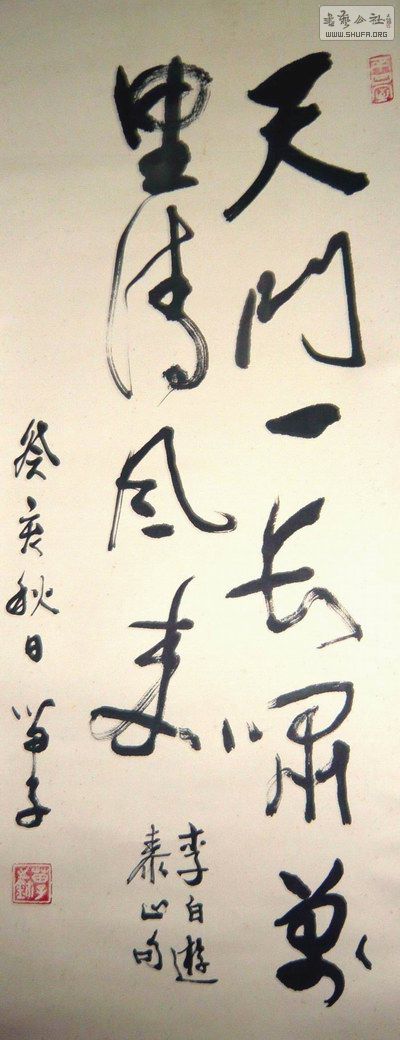 書藝公社
WWW.SHUFA.ORG
天門一長嘯萬
里清風来
李白遊
泰山句
癸亥秋日苗子